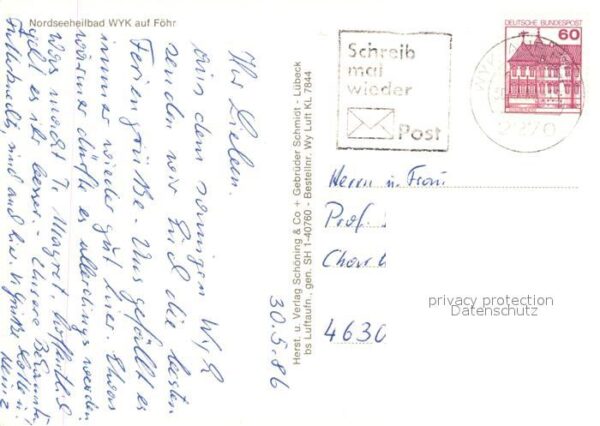 Nordseeheilbad WYK auf Föhr
Ihr Lieben.
aus dem sonnigen Wyk
senden wir Euch die besten
Feriengrüße. Uns gefällt es
immer wieder gut hier. Etwas
wärmer dürfte es allerdings werden.
Was macht Tt. Magret. Hoffentlich
geht es ihr besser. - Unsere Bekannten,
sind auch hier. V. Grüße
30.5.86
Herst. u. Verlag Schöning & Co + Gebrüder Schmidt - Lübeck
bs Luftaufn., gen. SH 1-40760 - Bestellnr. Wy Luft KL 7844
Schreib
mal
wieder
Post
DEUTSCHE BUNDESPOST
60
WYK
2270
Herrn u. Frau
Prof.
4630
privacy protection
Datenschutz